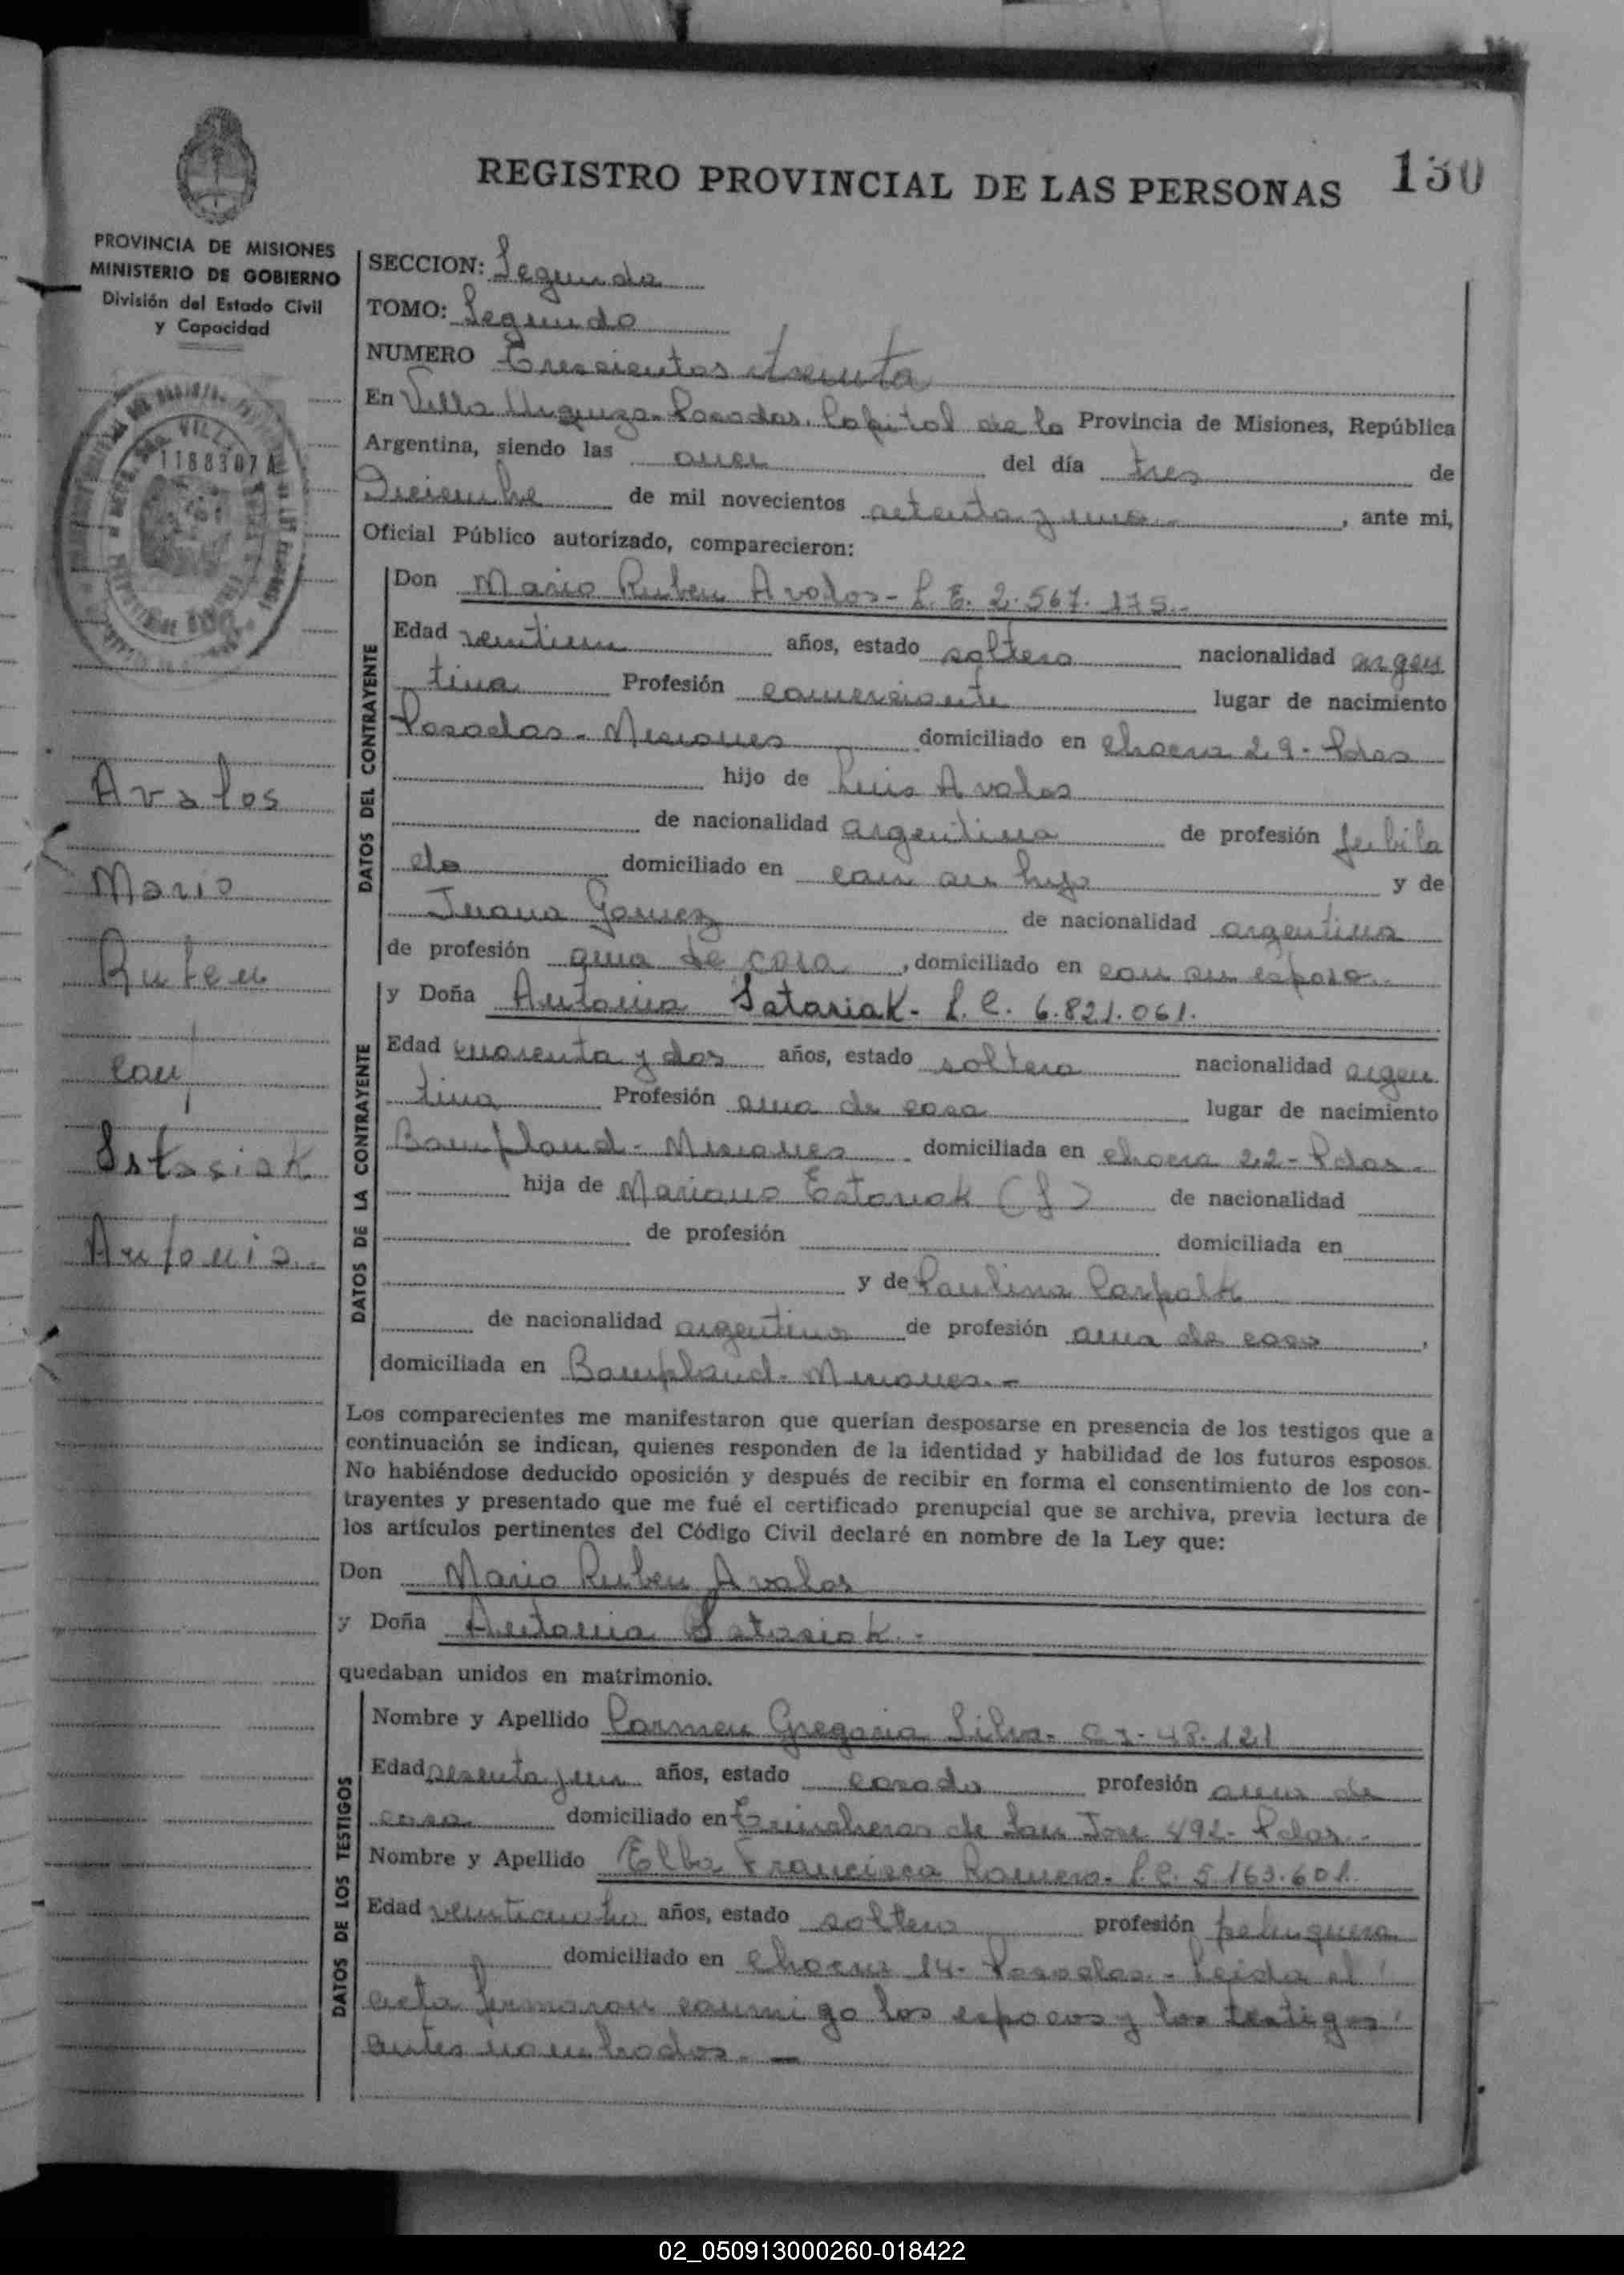 REGISTRO PROVINCIAL DE LAS PERSONAS 130
PROVINCIA DE MISIONES
MINISTERIO DE GOBIERNO
División del Estado Civil
y Capacidad
1188307A
Avalos
Mario
Ruben
con
Satasiak
Antonia..
SECCION: Segunda
TOMO: Segundo
NUMERO Trescientos treinta
En Villa Urquiza - Posadas. Capital de la Provincia de Misiones, República
Argentina, siendo las once del día tres de
Diciembre de mil novecientos setenta y uno.-, ante mi,
Oficial Público autorizado, comparecieron:
DATOS DEL CONTRAYENTE
Don Mario Ruben Avalos - L. E. 2.567.175.-
Edad años, estado soltero nacionalidad argen
tina Profesión comerciante lugar de nacimiento
Posadas - Misiones domiciliado en chacra 29 - Pdas
hijo de Luis Avalos
de nacionalidad argentina de profesión jubila
do domiciliado en con su hijo y de
Juana Gomez de nacionalidad argentina
de profesión ama de casa, domiciliado en con su esposo.-
DATOS DE LA CONTRAYENTE
y Doña Antonia Satasiak - L. C. 6.821.061.
Edad cuarenta y dos años, estado soltera nacionalidad argen
tina Profesión ama de casa lugar de nacimiento
Bompland - Misiones domiciliada en chacra 22 - Pdas.-
hija de Mariano (f) de nacionalidad
de profesión domiciliada en
y de Paulina
de nacionalidad argentina de profesión ama de casa,
domiciliada en Bompland - Misiones.-
Los comparecientes me manifestaron que querían desposarse en presencia de los testigos que a
continuación se indican, quienes responden de la identidad y habilidad de los futuros esposos.
No habiéndose deducido oposición y después de recibir en forma el consentimiento de los con-
trayentes y presentado que me fué el certificado prenupcial que se archiva, previa lectura de
los artículos pertinentes del Código Civil declaré en nombre de la Ley que:
Don Mario Ruben Avalos
y Doña Antonia Satasiak.-
quedaban unidos en matrimonio.
DATOS DE LOS TESTIGOS
Nombre y Apellido Carmen Gregoria Silva - C I - 48.121
Edad sesenta y un años, estado casada profesión ama de
casa domiciliado en Trincheras de San Jose 492 - Pdas.-
Nombre y Apellido Elba Francisca Romero - L. C. 5.163.601.
Edad años, estado soltera profesión peluquera
domiciliado en Chacra 14 - Posadas.- Leida el
acta firmaron conmigo los esposos y los testigos
antes nombrados.-
02_050913000260-018422